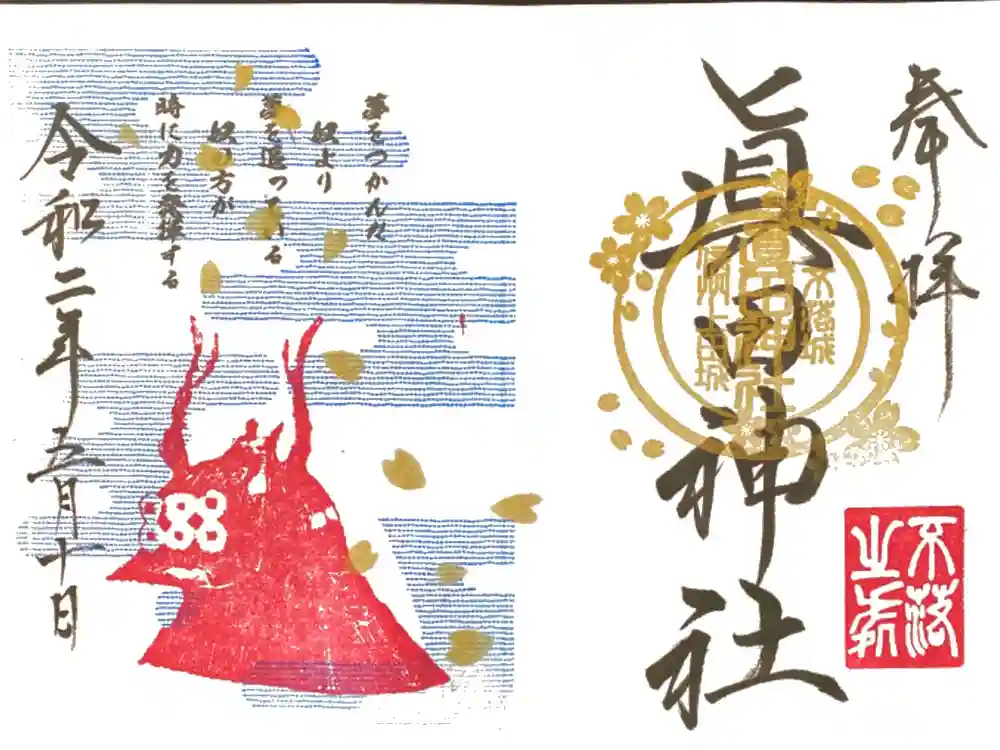 奉拝
眞田神社
不落城
眞田神社
信州上田城
不落
之城
夢をつかんだ
奴より
夢を追っている
奴の方が
時に力を発揮する
令和二年五月十日